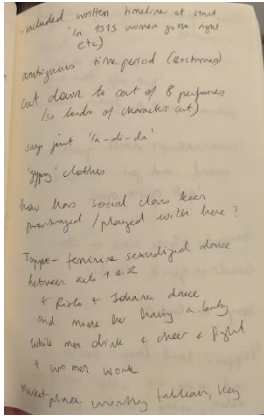 - included written timeline at start
'in 1915 women got the right
etc)
ambiguous time period (costumes)
cut down to cast of 8 performers
(so loads of characters cut)
say just 'la-di-da'
'gypsy' clothes
how has social class been
portrayed / played with here?
- feminine sexualized dance
between acts 1 & 2
+ & Johanna dance
and more her having a baby
while men drink & cheer & fight
& women work
Market place working tableau, key